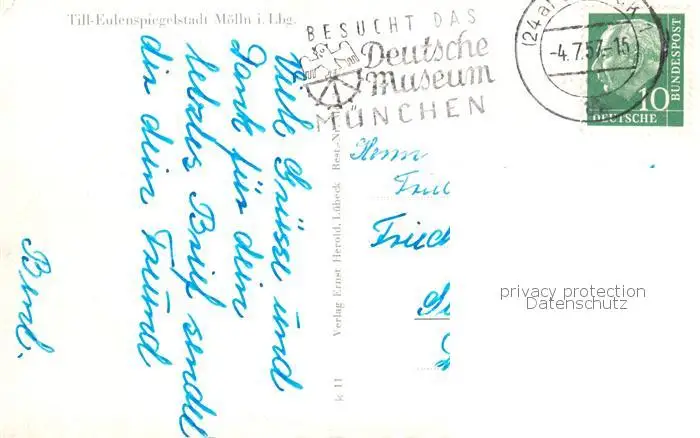 Till-Eulenspiegelstadt Mölln i. Lbg.
BESUCHT DAS
Deutsche
Museum
MÜNCHEN
-4.7.57-15
10
DEUTSCHE
BUNDESPOST
Viele Grüsse und
Dank für dein
letztes Brief sendet
dir dein Freund
Bernd.
Verlag Ernst Herold, Lübeck Best.-Nr.
k 11
Herrn
privacy protection
Datenschutz